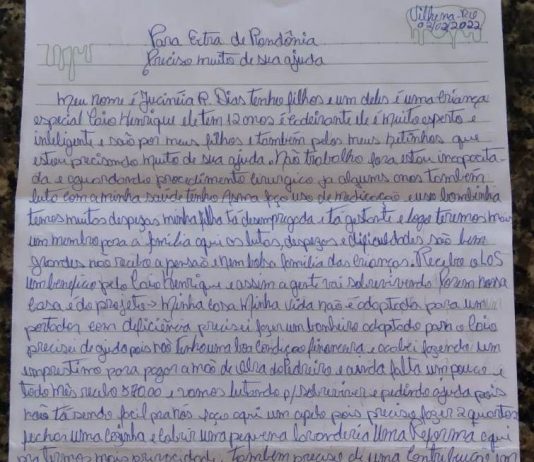 Vilhena-RO
02/02/2022
Para Extra de Rondônia
Preciso muito de sua ajuda
Meu nome é Jucinéia R. Dias tenho filhos e um deles é uma criança
especial Caio Henrique ele tem 12 anos é Cadeirante ele é muito esperto e
inteligente e são por meus filhos e também pelos meus netinhos que
estou precisando muito de sua ajuda. Não trabalho fora estou incapacita-
da e aguardando procedimento cirurgico ja alguns anos também
luto com a minha saúde tenho Asma faço uso de medicação e uso bombinha
temos muitas despezas minha filha tá desempregada e tá gestante e logo teremos mais
um membro para a familia aqui as lutas, despezas e dificuldades são bem
grandes não recebo a pensão e nem bolsa familia das crianças. Recebo o LOS
um beneficio pelo Caio Henrique e assim a gente vai sobrevivendo Porem nossa
Casa é do projeto Minha Casa Minha Vida não é adaptada para um
portador com deficiência precisei fazer um banheiro adaptado para o Caio
precisei de ajuda pois não tenho uma boa condição financeira e acabei fazendo um
emprestimo para pagar a mão de obra do Pedreiro e ainda falta um pouco e
todo mês recebo e vamos lutando p/ sobreviver e pedindo ajuda pois
não tá sendo facil pra nós faço aqui um apelo pois preciso fazer 2 quartos
fechar uma cozinha e cobrir uma pequena lavanderia Uma Reforma aqui
pra termos mais privacidade. Também preciso de uma